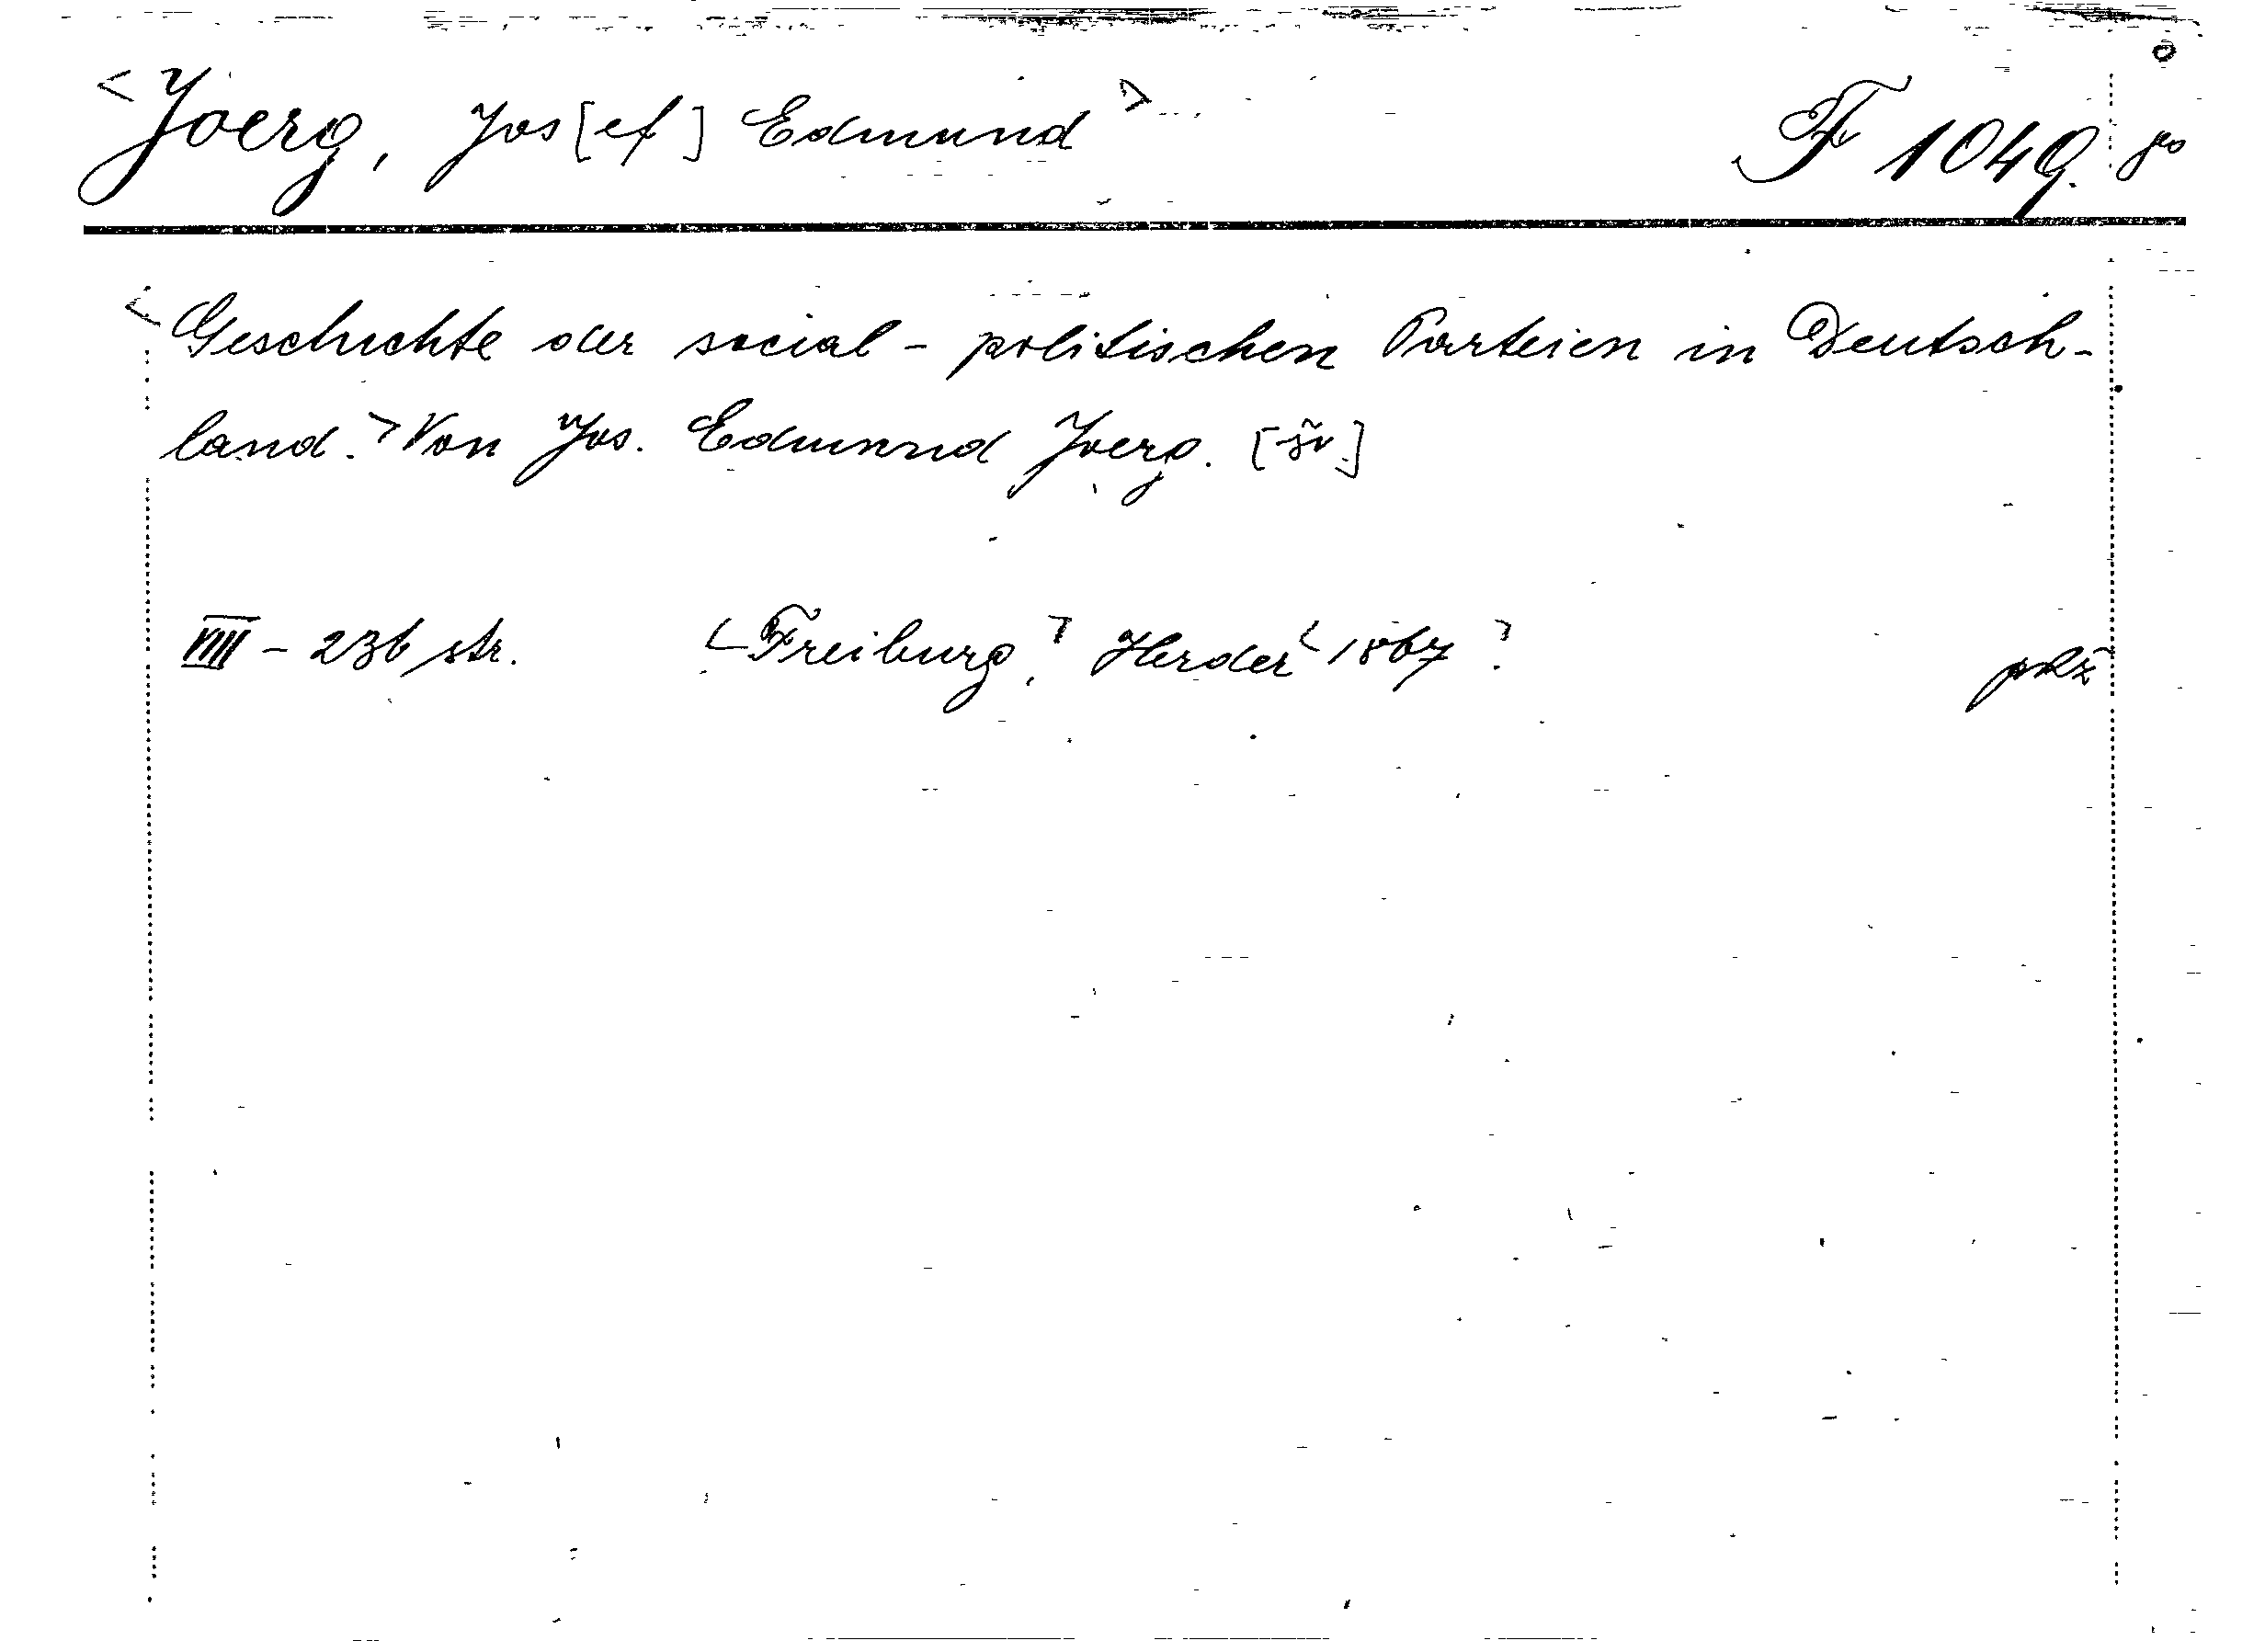 <Joerg, Jos[ef] Edmund> F 1049.
<Geschichte der social-politischen Parteien in Deutsch-
land.> Von Jos. Edmund Joerg. [šv]
VIII - 236 str. <Freiburg,> Herder <1867>